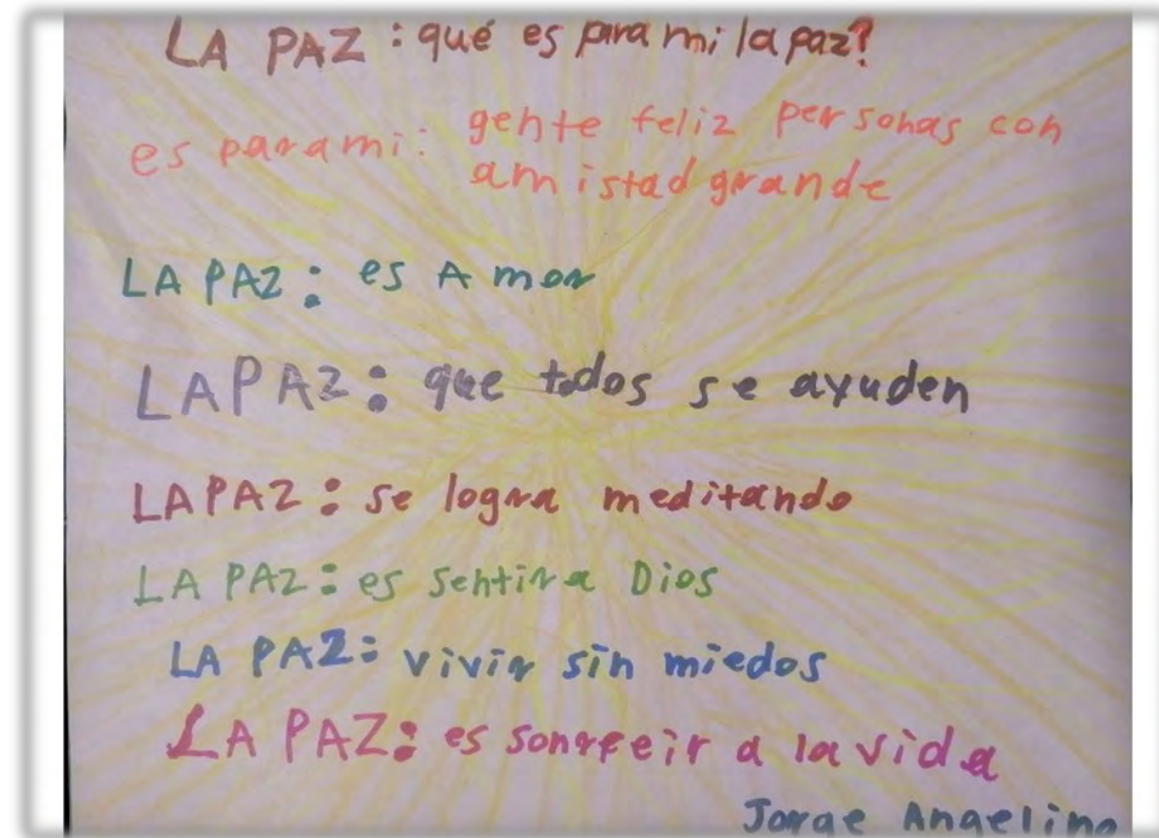 LA PAZ : qué es para mi la paz?
es para mi: gente feliz personas con
amistad grande
LA PAZ: es Amor
LA PAZ: que todos se ayuden
LA PAZ: se logra meditando
LA PAZ: es sentir a Dios
LA PAZ: vivir sin miedos
LA PAZ: es sonreeir a la vida
Jorge Angelino